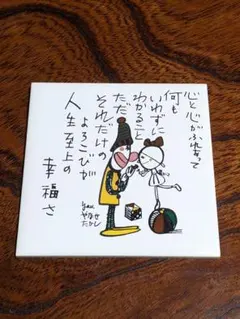 心と心がふれあって
何も
いわずに
わかること
ただ
それだけの
よろこびが
人生至上の
幸福さ
やなせ
たかし